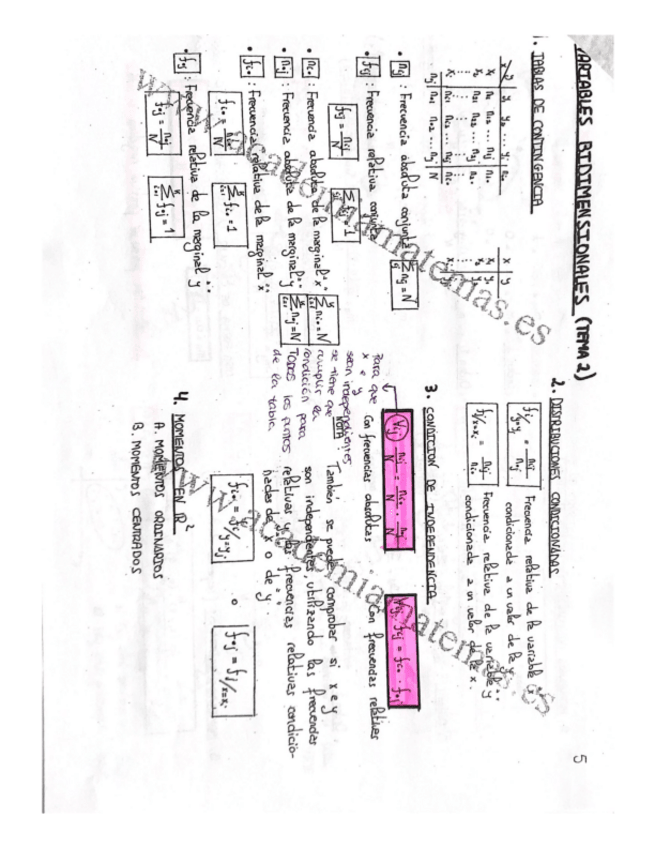 VARIABLES BIDIMENSIONALES (TEMA 2)
5
1. TABLAS DE CONTINGENCIA
x y
• nij : Frecuencia absoluta conjunta
ΣΣ nij = N
• fij : Frecuencia relativa conjunta
fij = nij/N
ΣΣ fij = 1
• ni• : Frecuencia absoluta de la marginal "x"
Σ ni• = N
• n•j : Frecuencia absoluta de la marginal "y"
Σ n•j = N
• fi• : Frecuencia relativa de la marginal "x"
fi• = ni•/N
Σ fi• = 1
• f•j : Frecuencia relativa de la marginal "y"
f•j = n•j/N
Σ f•j = 1
2. DISTRIBUCIONES CONDICIONADAS
fi/y=yj = nij/n•j
Frecuencia relativa de la variable x
condicionada a un valor de la y.
fj/x=xi = nij/ni•
Frecuencia relativa de la variable y
condicionada a un valor de la x.
3. CONDICION DE INDEPENDENCIA
nij/N = ni•/N · n•j/N
fij = fi• · f•j
Con frecuencias absolutas
Con frecuencias relativas
Para que
x e y
sean independientes
se tiene que
cumplir la
condición para
TODOS los puntos
de la tabla
NOTA: También se puede comprobar si x e y
son independientes, utilizando las frecuencias
relativas y las frecuencias relativas condicio-
nadas de "x" o de "y".
fi• = fi/y=yj
o
f•j = fj/x=xi
4. MOMENTOS EN R²
A. MOMENTOS ORDINARIOS
B. MOMENTOS CENTRADOS
www.academiamatemas.es
www.academiamatemas.es